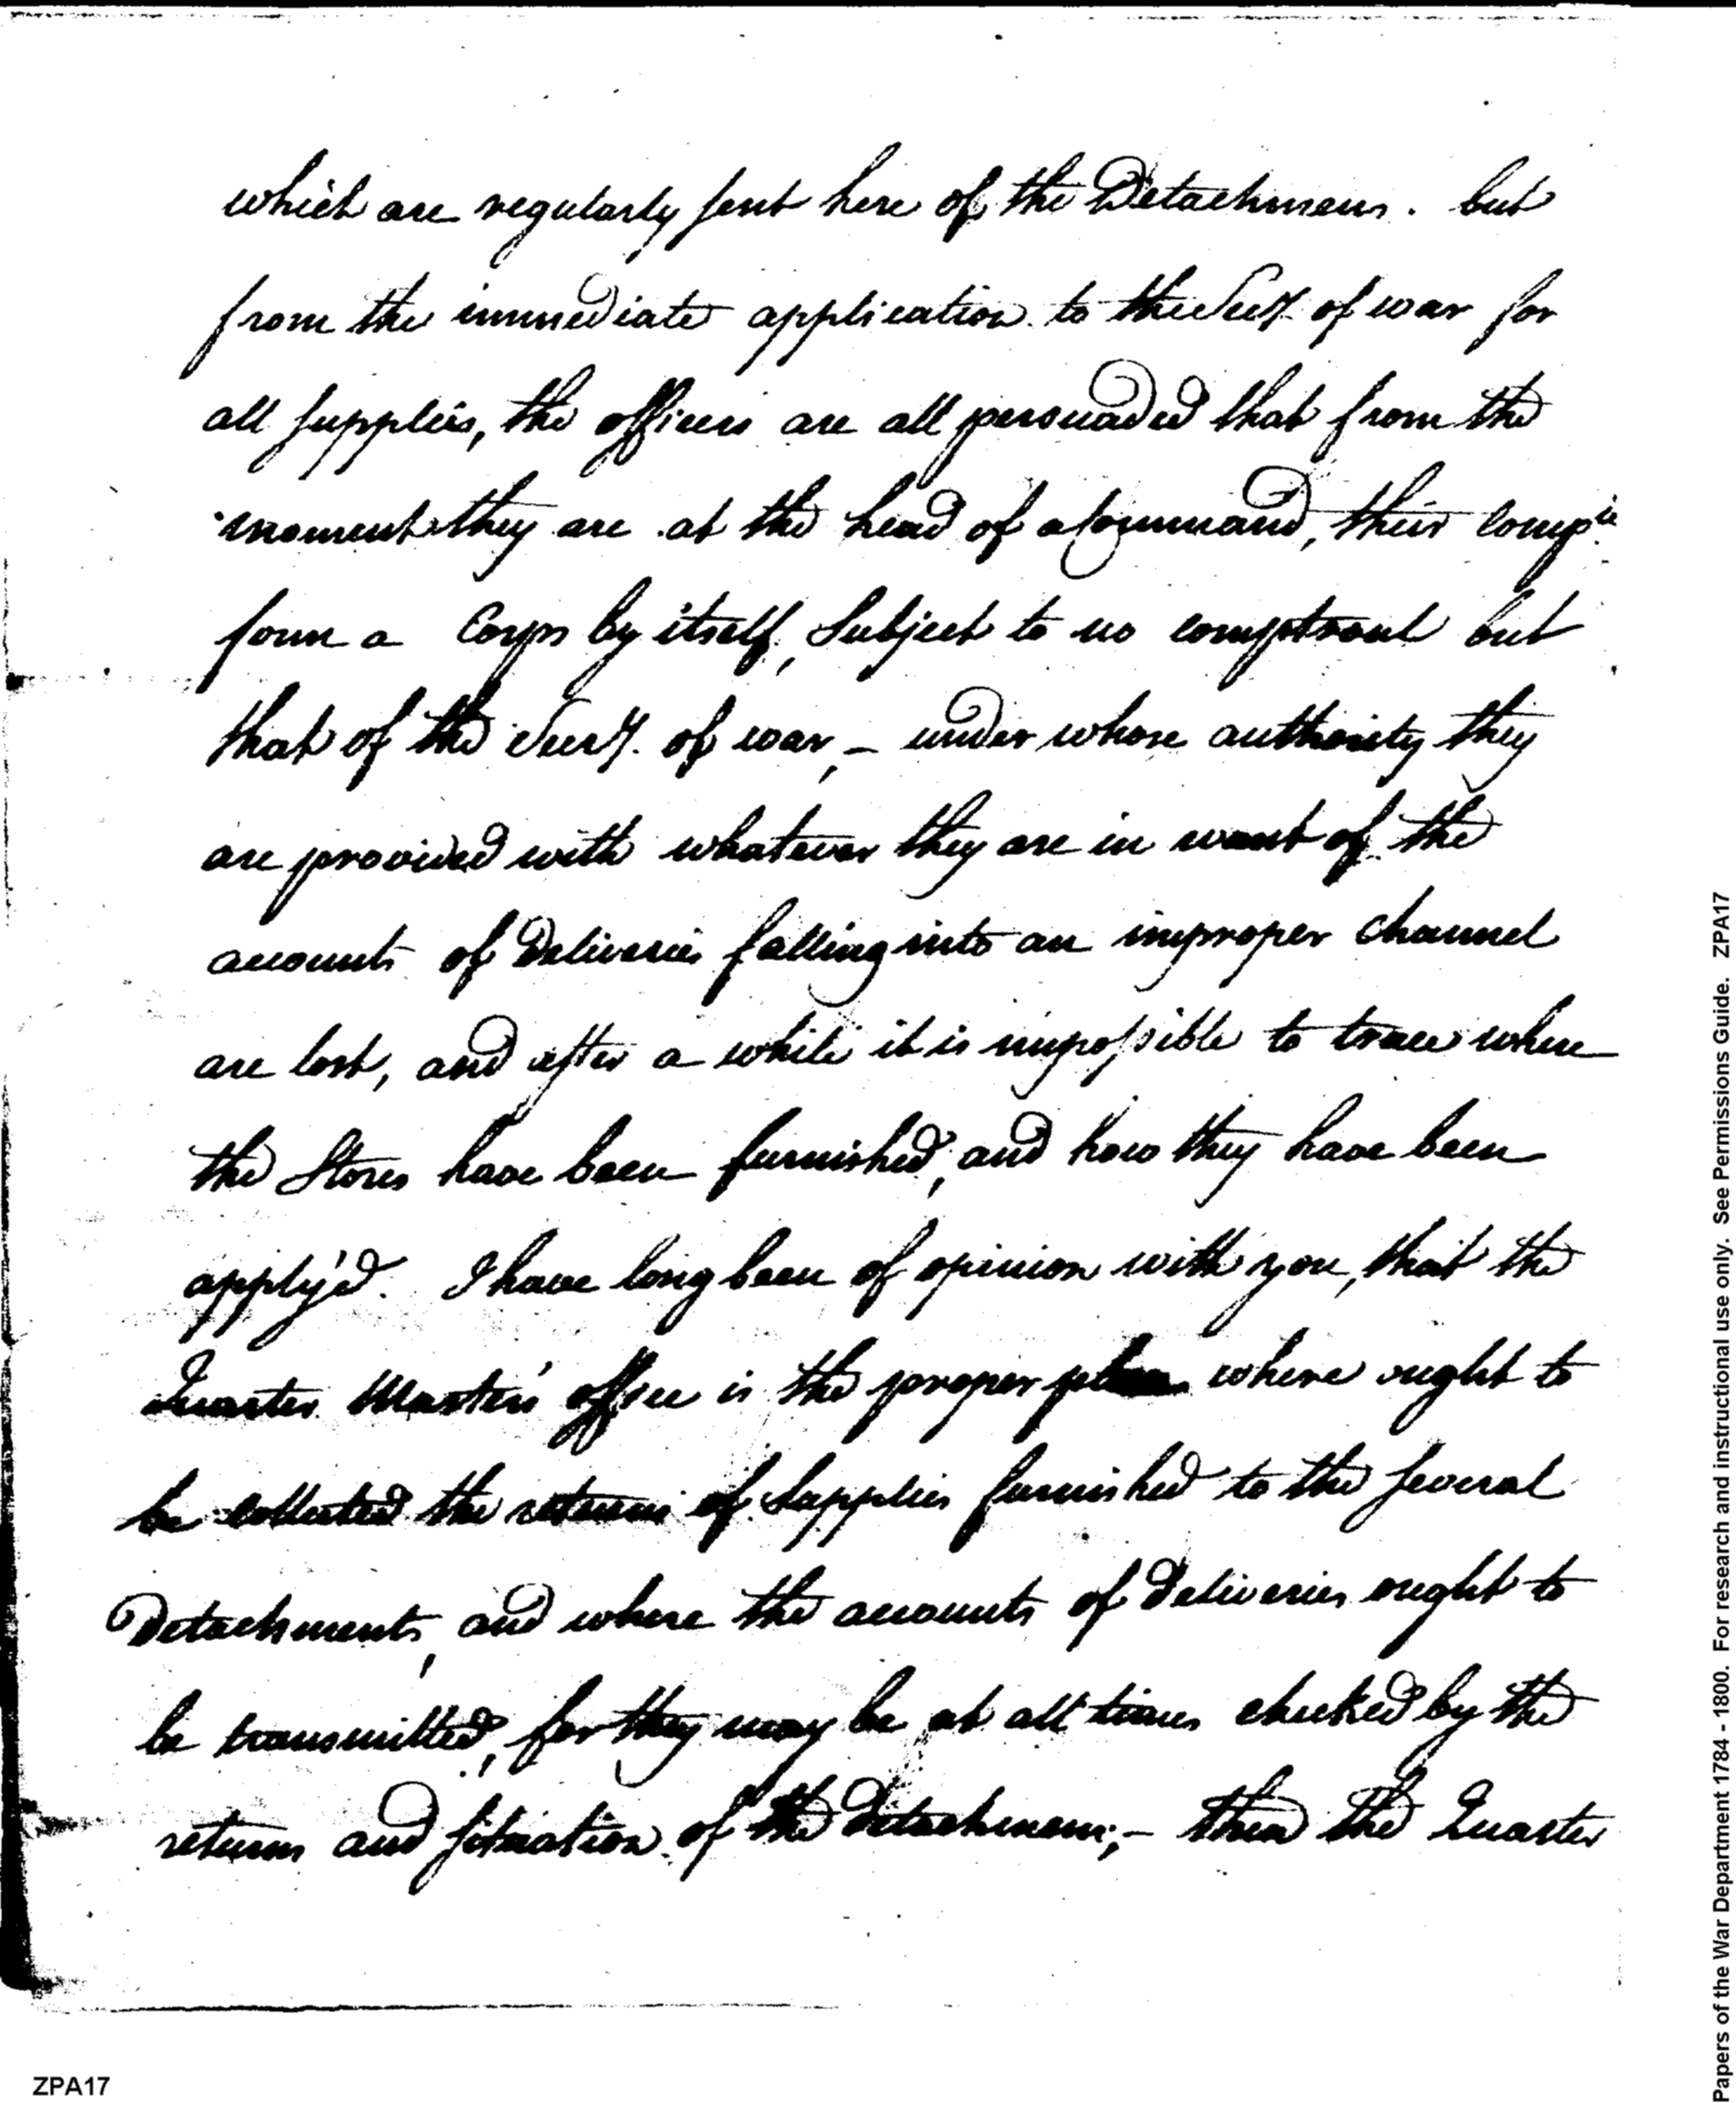 which are regularly sent here of the Detachmens. but
from the immediate application to the Secy. of war for
all supplies, the officers are all persuaded that from the
moment they are at the head of a Command, their Compie
form a Corps by itself, Subject to no comptroul but
that of the Secry. of war, – under whose authority they
are provided with whatever they are in want of. the
accounts of Deliveries falling into an improper channel
are lost, and after a while it is impossible to trace where
the Stores have been furnished, and how they have been
apply'd. I have long been of opinion with you, that the
Quarter Master's office is the proper place where ought to
be collected the returns of Supplies furnished to the several
Detachments, and where the accounts of Deliveries ought to
be transmitted, for they may be at all times checked by the
returns and situation of the Detachmens; – then the Quarter
ZPA17
Papers of the War Department 1784 - 1800. For research and instructional use only. See Permissions Guide. ZPA17